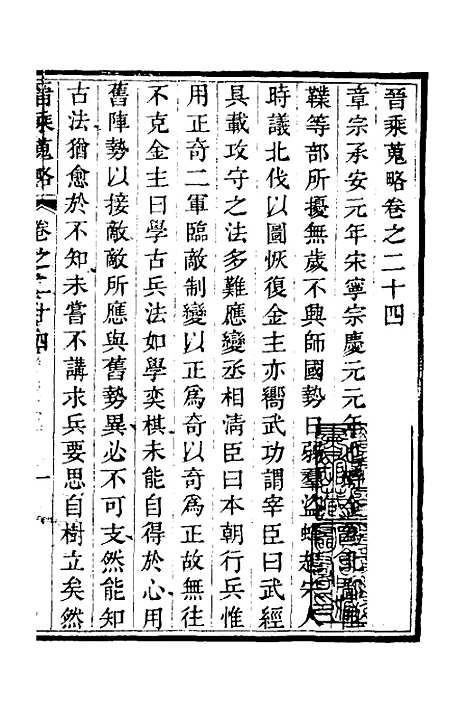 晉乘蒐略卷之二十四
章宗承安元年宋寧宗慶元元年金北
鞢等部所擾無歲不興師國勢日弱羣盜蜂起宋人
時議北伐以圖恢復金主亦嚮武功謂宰臣曰武經
具載攻守之法多難應變丞相淸臣曰本朝行兵惟
用正奇二軍臨敵制變以正爲奇以奇爲正故無往
不克金主曰學古兵法如學奕棋未能自得於心用
舊陣勢以接敵敵所應與舊勢異必不可支然能知
古法猶愈於不知未嘗不講求兵要思自樹立矣然
晉乘蒐略
卷之二十四
一